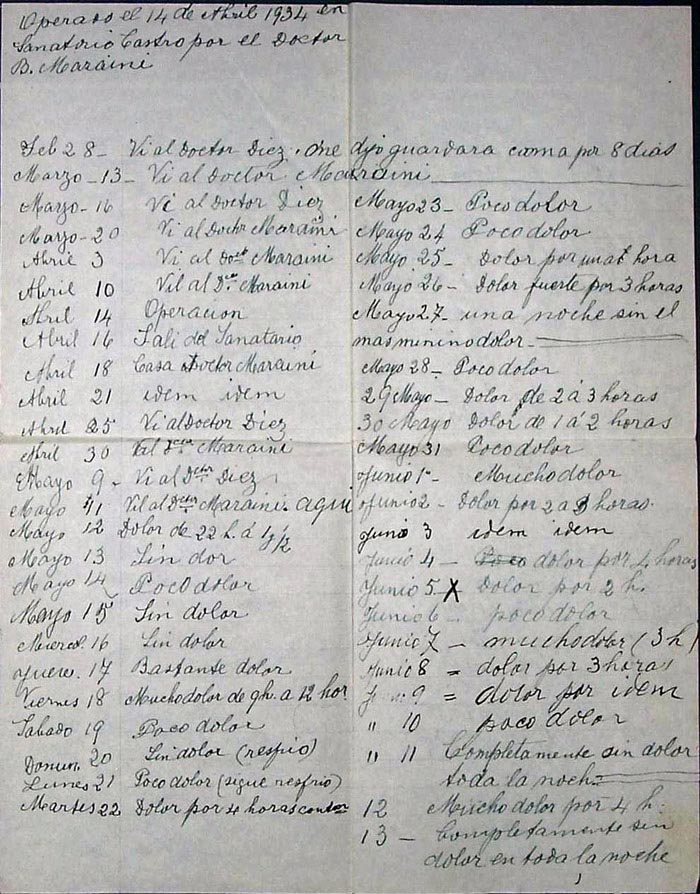 Operado el 14 de Abril 1934 en
Sanatorio Castro por el Doctor
B. Maraini
Feb 28 - Vi al Doctor Diez, me dijo guardara cama por 8 dias
Marzo - 13 - Vi al Doctor Maraini
Marzo - 16 Vi al Doctor Diez
Marzo - 20 Vi al Doctor Maraini
Abril 3 Vi al Doctor Maraini
Abril 10 Vi al Dctor Maraini
Abril 14 Operacion
Abril 16 Sali del Sanatario
Abril 18 Casa Doctor Maraini
Abril 21 idem idem
Abril 25 Vi al Doctor Diez
Abril 30 Vi al Dctor Maraini
Mayo 9 - Vi al Dctor Diez
Mayo 11 Vi al Dctor Maraini - aqui
Mayo 12 Dolor de 22 h. á 1 1/2
Mayo 13 Sin dor
Mayo 14 Poco dolor
Mayo 15 Sin dolor
Miercol. 16 Sin dolor
Jueve. 17 Bastante dolor
Viernes 18 Mucho dolor de 9h. a 12 hor.
Sabado 19 Poco dolor
Domin. 20 Sin dolor (resfrio)
Lunes 21 Poco dolor (sigue resfrio)
Martes 22 Dolor por 4 horas
Mayo 23 - Poco dolor
Mayo 24 Poco dolor
Mayo 25 - Dolor por una hora
Mayo 26 - Dolor fuerte por 3 horas
Mayo 27 - una noche sin el
mas minino dolor -
Mayo 28 - Poco dolor
29 Mayo - Dolor de 2 á 3 horas
30 Mayo Dolor de 1 á 2 horas
Mayo 31 Poco dolor
Junio 1º - Mucho dolor
Junio 2 - Dolor por 2 a 3 horas.
Junio 3 idem idem
Junio 4 - Poco dolor por 4 horas
Junio 5 - X Dolor por 2 h.
Junio 6 - poco dolor
Junio 7 - mucho dolor (3 h)
Junio 8 = dolor por 3 horas
9 = dolor por idem
" 10 poco dolor
" 11 Completamente sin dolor
toda la noche
12 Mucho dolor por 4 h.
13 - Completamente sin
dolor en toda la noche